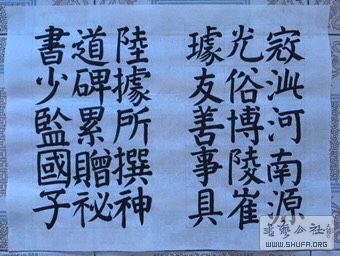 寇泚河南源
光俗博陵崔
璩友善事具
陸據所撰神
道碑累贈秘
書少監國子
WWW.SHUFA.ORG